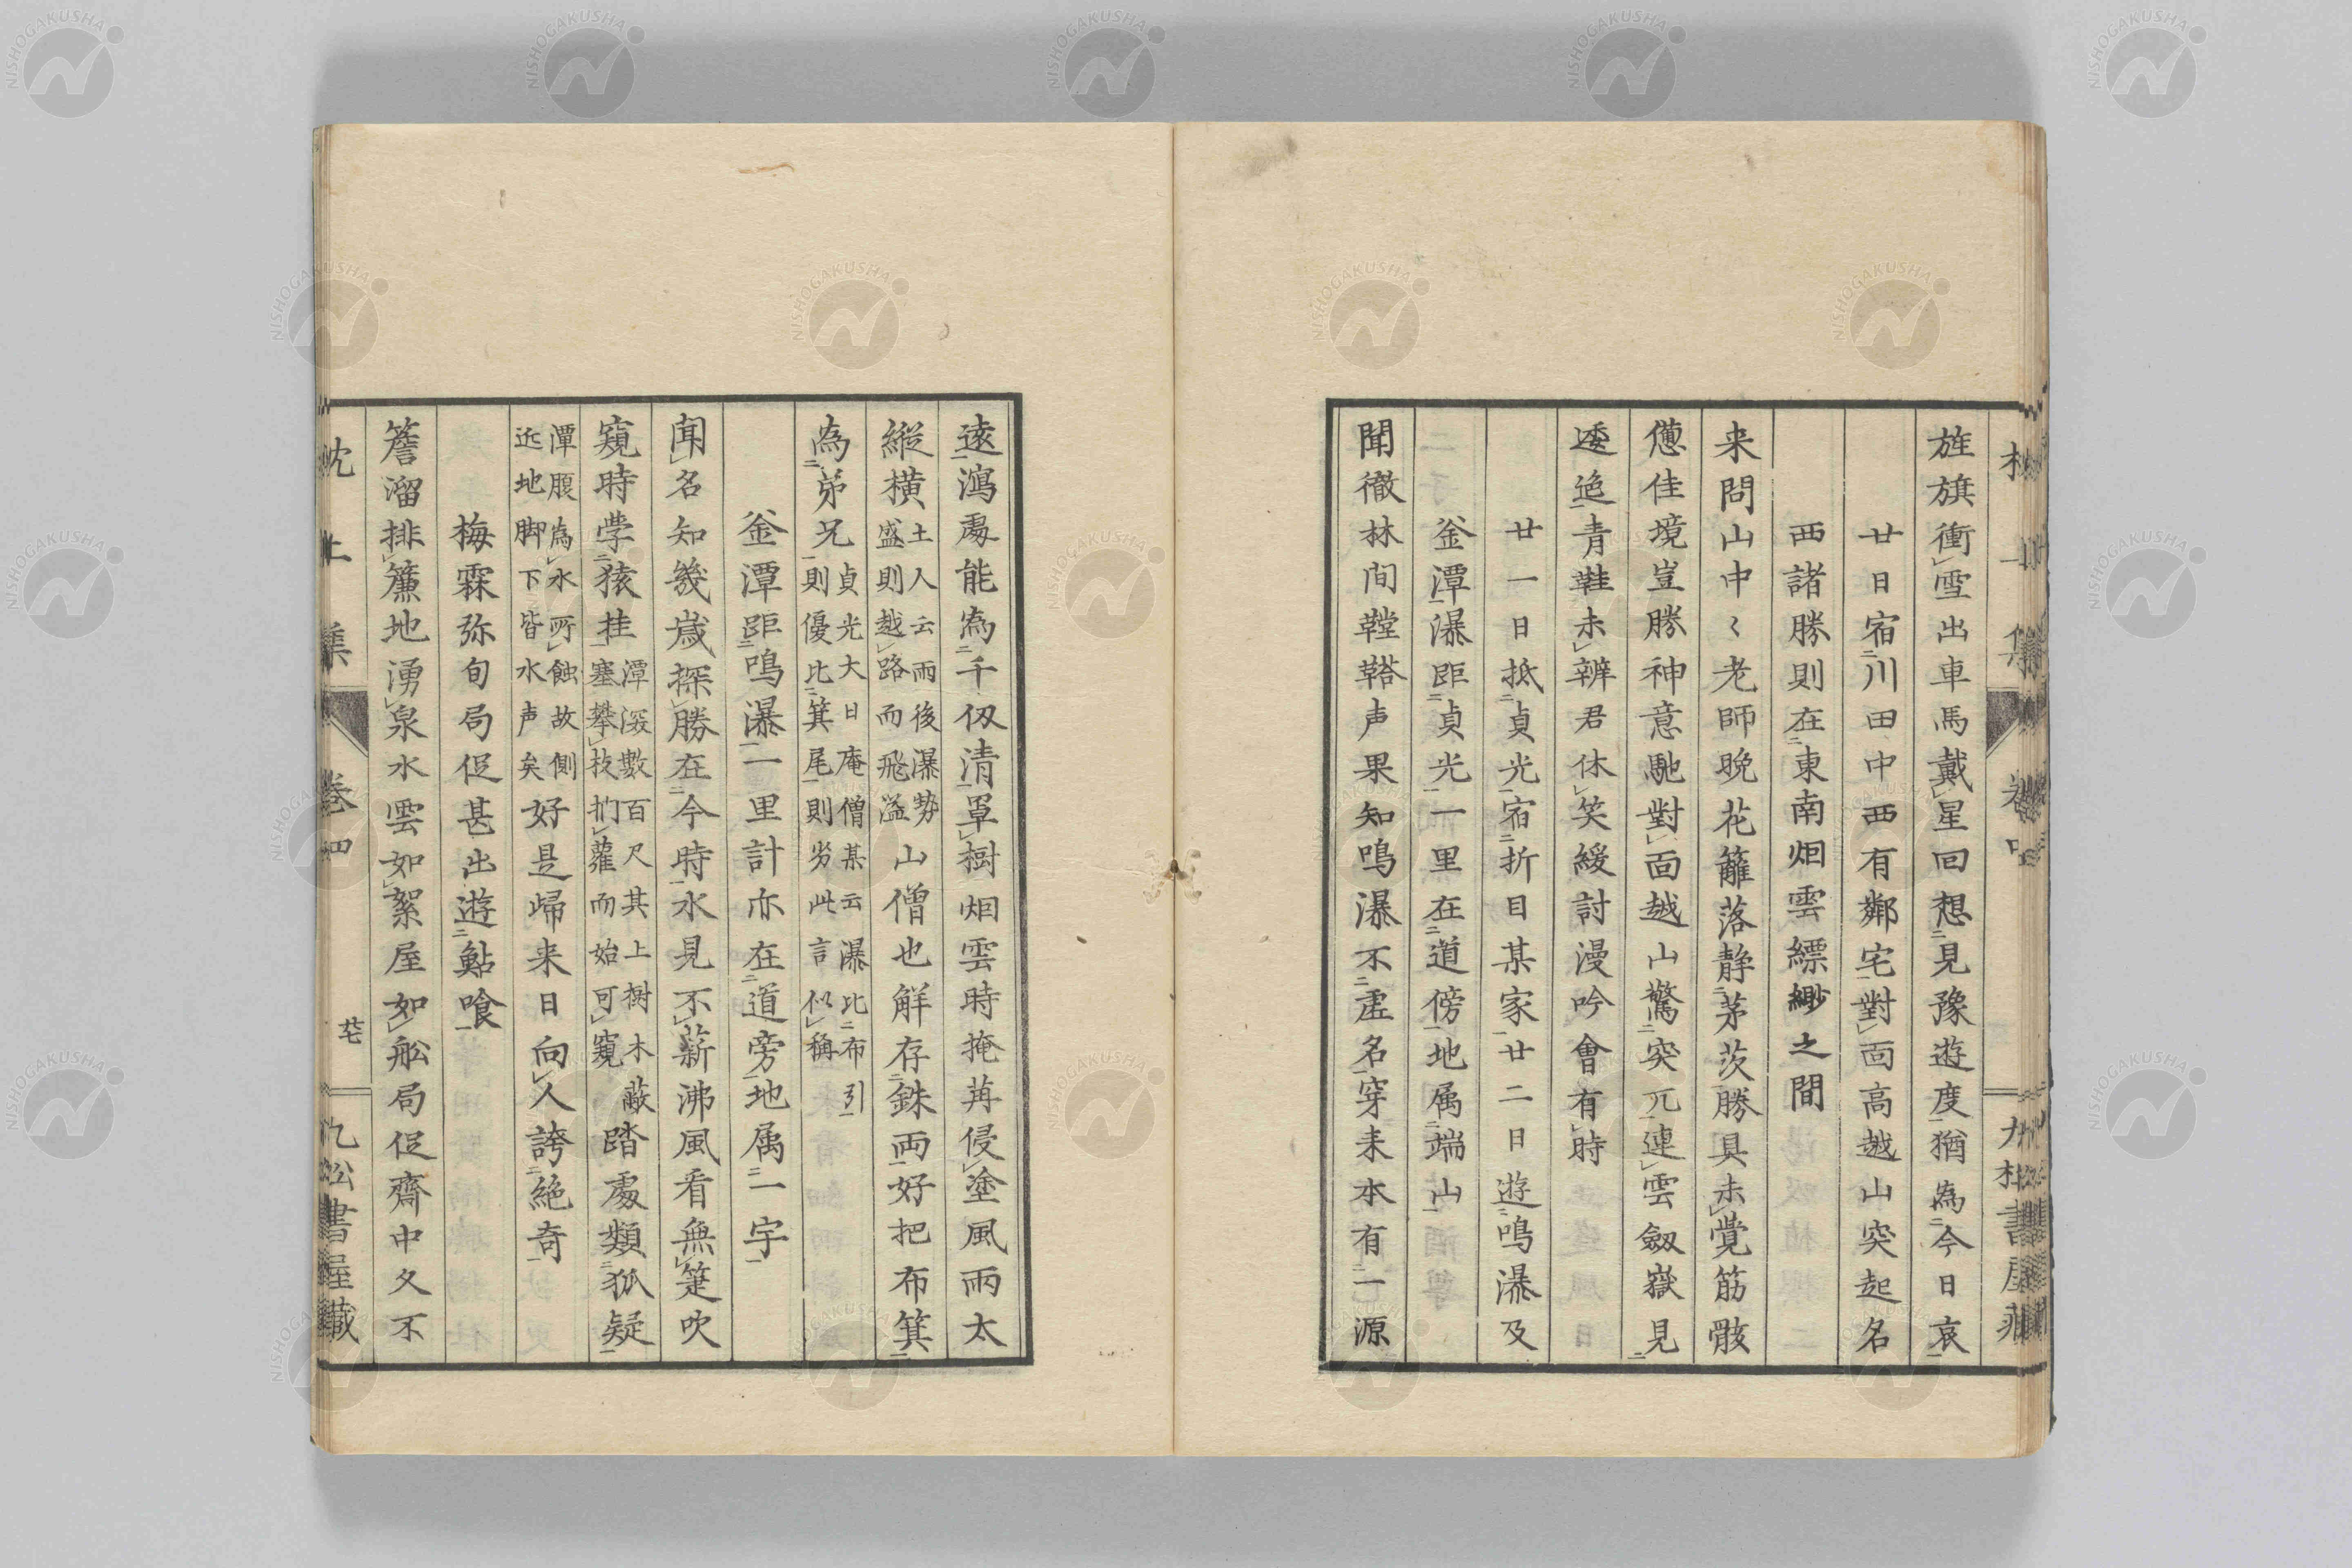 旌旗衝雪出車馬戴星回想見豫遊度猶為今日哀
廿日宿川田中西有鄰宅對面高越山突起名
西諸勝則在東南烟雲縹緲之間
来問山中〻老師晩花籬落静茅茨勝具未覺筋骸
憊佳境豈勝神意馳對面越山驚突兀連雲劔嶽見
逶迤青鞋未辨君休笑緩討漫吟會有時
廿一日抵貞光宿折目某家廿二日遊鳴瀑及
釜潭瀑距貞光一里在道傍地属端山
聞徹林間鞺鞳声果知鳴瀑不虚名穿来本有一源
遠瀉處能為千仭清罩樹烟雲時掩苒侵塗風雨太
縦橫土人云雨後瀑勢盛則越路而飛溢山僧也解存銖両好把布箕
為弟兄貞光大日庵僧某云瀑比布引則優比箕尾則劣此言似稱
釜潭距鳴瀑一里計亦在道旁地属一宇
聞名知幾歳探勝在今時水見不薪沸風看無箑吹
窺時学猿挂潭深數百尺其上樹木蔽塞攀枝捫蘿而始可窺踏處類狐疑
潭腹為水所蝕故側近地脚下皆水声矣好是歸来日向人誇絶奇
梅霖弥旬局促甚出遊鮎喰
簷溜排簾地湧泉水雲如絮屋如舩局促齋中久不
巻四
書屋藏
NISHOGAKUSHA